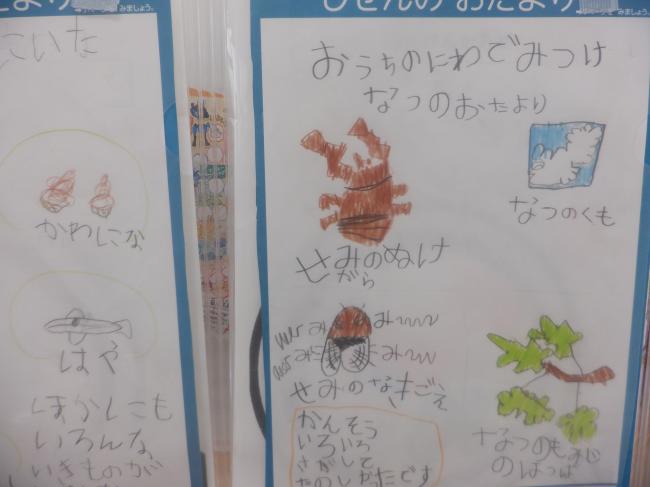 だより
みましょう。
にいた
かわにな
はや
ほかにも
いろんな
いきものが
しぜんの おたより
みましょう。
おうちのにわでみつけ
なつのおたより
なつのくも
せみのぬけ
がら
みーん
みーん
せみのなきごえ
かんそう
いろいろ
さがして
たのしかったです
なつのもみじ
のはっぱ